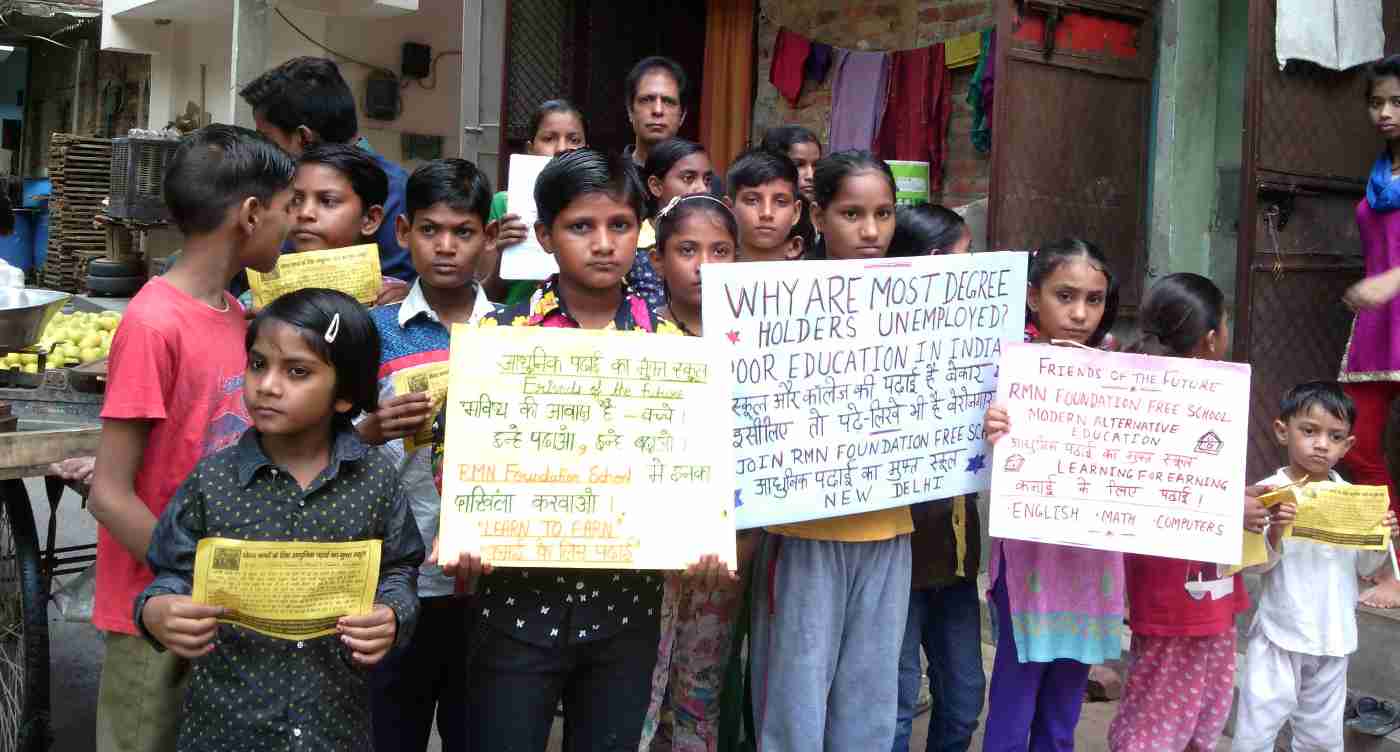 आधुनिक पढ़ाई का मुफ्त स्कूल
Friends of the Future
भविष्य की आवाज़ है - बच्चे।
इन्हें पढ़ाओ, इन्हें बढ़ाओ।
RMN Foundation School में इनका
दाखिला करवाओ।
"LEARN TO EARN"
कमाई के लिए पढ़ाई
WHY ARE MOST DEGREE
HOLDERS UNEMPLOYED?
POOR EDUCATION IN INDIA
स्कूल और कॉलेज की पढ़ाई है बेकार
इसीलिए तो पढ़े-लिखे भी हैं बेरोजगार
JOIN RMN FOUNDATION FREE SCHOOL
आधुनिक पढ़ाई का मुफ्त स्कूल
NEW DELHI
FRIENDS OF THE FUTURE
RMN FOUNDATION FREE SCHOOL
MODERN ALTERNATIVE
EDUCATION
आधुनिक पढ़ाई का मुफ्त स्कूल
LEARNING FOR EARNING
कमाई के लिए पढ़ाई।
ENGLISH · MATH · COMPUTERS